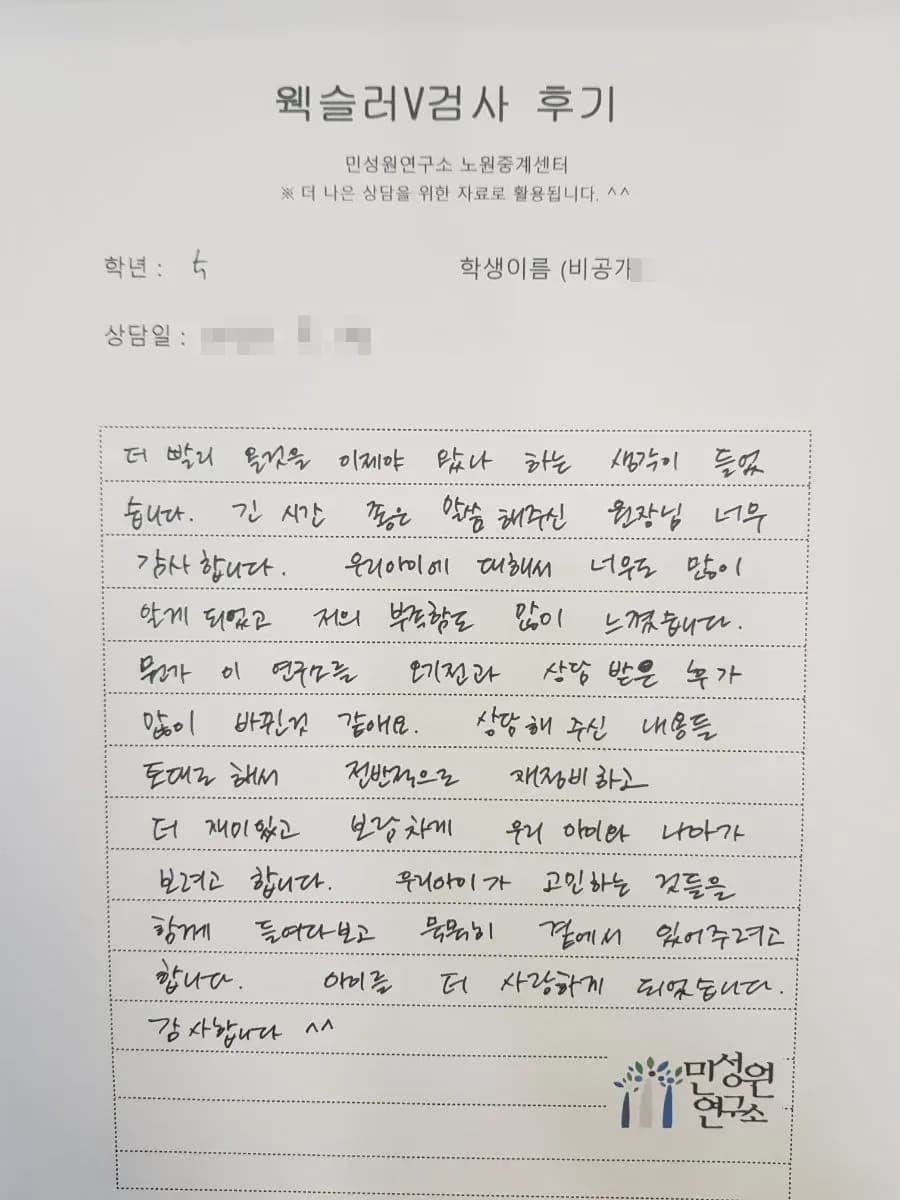 웩슬러V검사 후기
민성원연구소 노원중계센터
※ 더 나은 상담을 위한 자료로 활용됩니다. ^^
학년 : 5
학생이름 (비공개
상담일 :
더 빨리 올것을 이제야 왔나 하는 생각이 들었
습니다. 긴 시간 좋은 말씀 해주신 원장님 너무
감사합니다. 우리아이에 대해서 너무도 많이
알게 되었고 저의 부족함도 많이 느꼈습니다.
뭔가 이 연구소를 오기전과 상담 받은 후가
많이 바뀐것 같애요. 상담해 주신 내용들
토대로 해서 전반적으로 재정비하고
더 재미있고 보람차게 우리 아이와 나아가
보려고 합니다. 우리아이가 고민하는 것들을
함께 들여다보고 묵묵히 곁에서 있어주려고
합니다. 아이를 더 사랑하게 되었습니다.
감사합니다 ^^
민성원
연구소